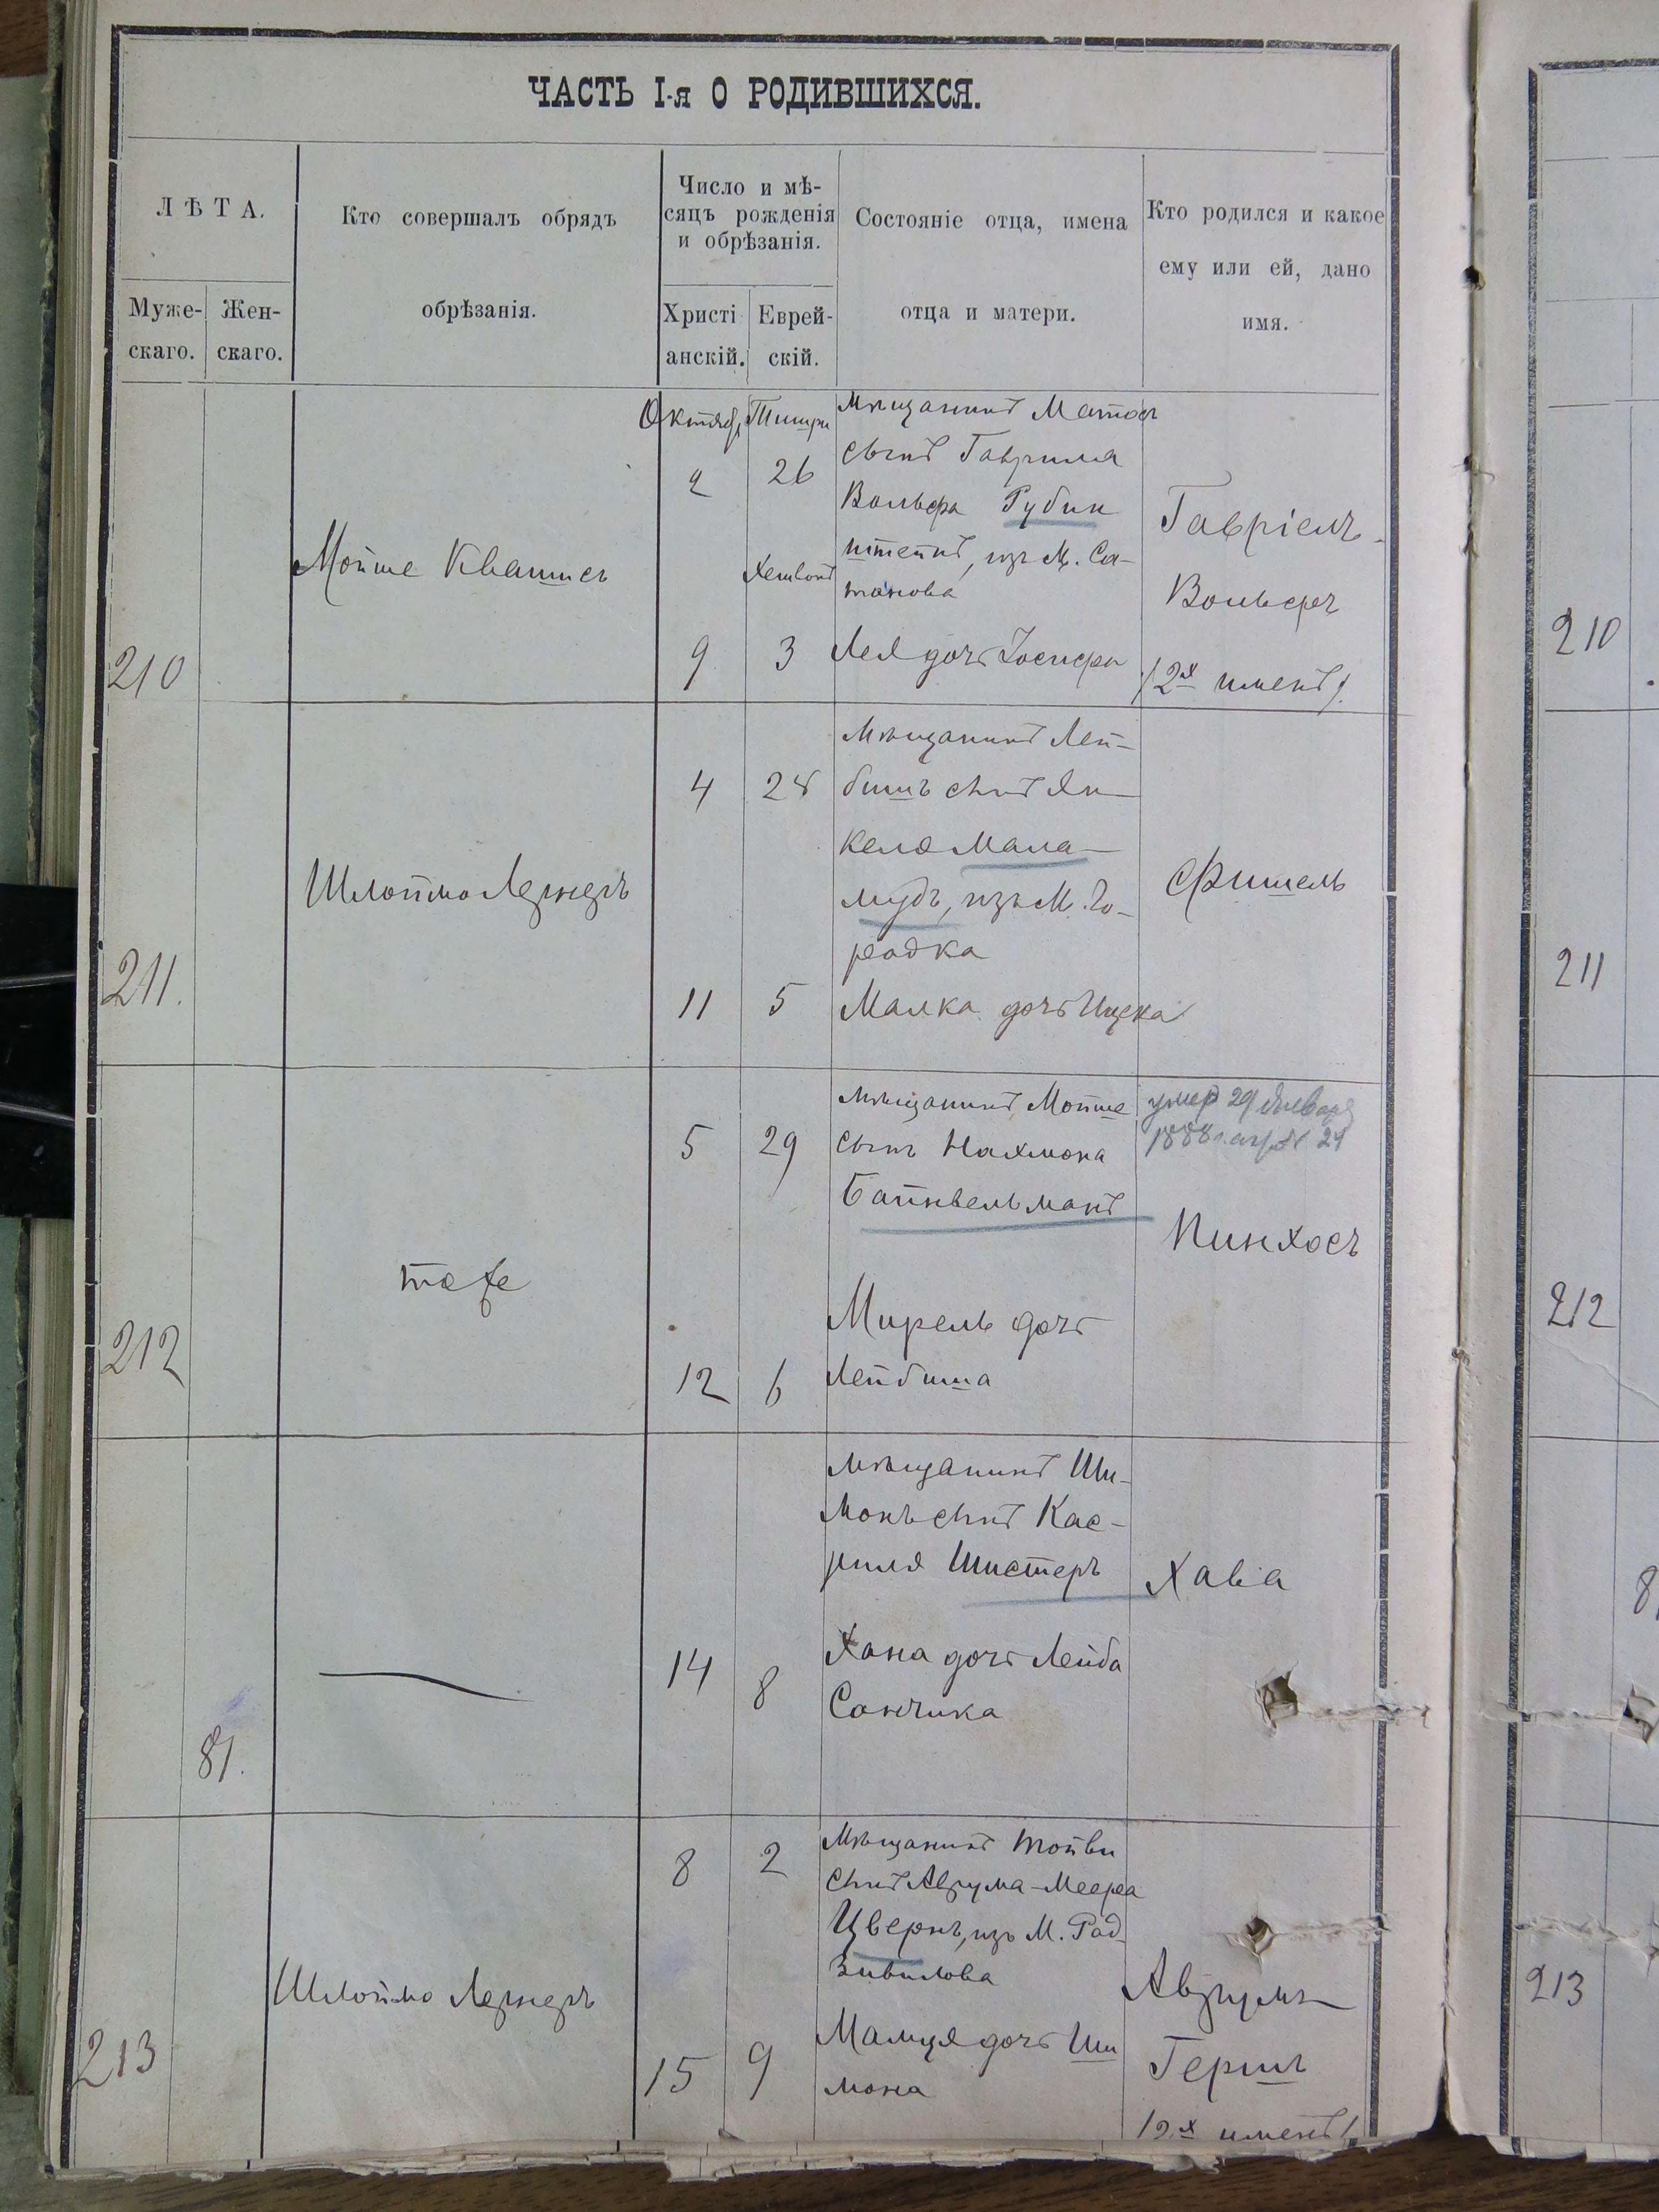 ЧАСТЬ I-я О РОДИВШИХСЯ.
ЛѢТА.
Муже-
скаго.
Жен-
скаго.
Кто совершалъ обрядъ
обрѣзанія.
Число и мѣ-
сяцъ рожденія
и обрѣзанія.
Христі
анскій.
Еврей-
скій.
Состояніе отца, имена
отца и матери.
Кто родился и какое
ему или ей, дано
имя.
210
Мойше Квашись
Октябр
2
9
Тишри
26
Хешвонъ
3
Мѣщанинъ Матос
сынъ Гаврила
Вольфа Рубин
штейнъ, изъ М. Са-
танова
Лея дочь Іосифа
Гавріель-
Вольфъ
/2х именъ/.
210
211.
Шлойма Лернеръ
4
11
28
5
Мѣщанинъ Лей-
бишъ сынъ Ян-
келя Мала-
мудъ, изъ М. Го-
родка
Малка дочь Ицка
Фишель
211
212
тоже
5
12
29
6
Мѣщанинъ Мойше
сынъ Нахмона
Байнвельманъ
Мирель дочь
Лейбиша
умер 29 Января
1888 г. акт № 24
Пинхосъ
212
81.
14
8
Мѣщанинъ Ши-
монъ сынъ Кас-
риля Шистеръ
Хана дочь Лейба
Сончика
Хава
81
213
Шлойма Лернеръ
8
15
2
9
Мѣщанинъ Тойви
сынъ Аврума-Меера
Цвернъ, изъ М. Рад-
зивилова
Малця дочь Ши
мона
Аврумъ-
Гершъ
/2х именъ/
213